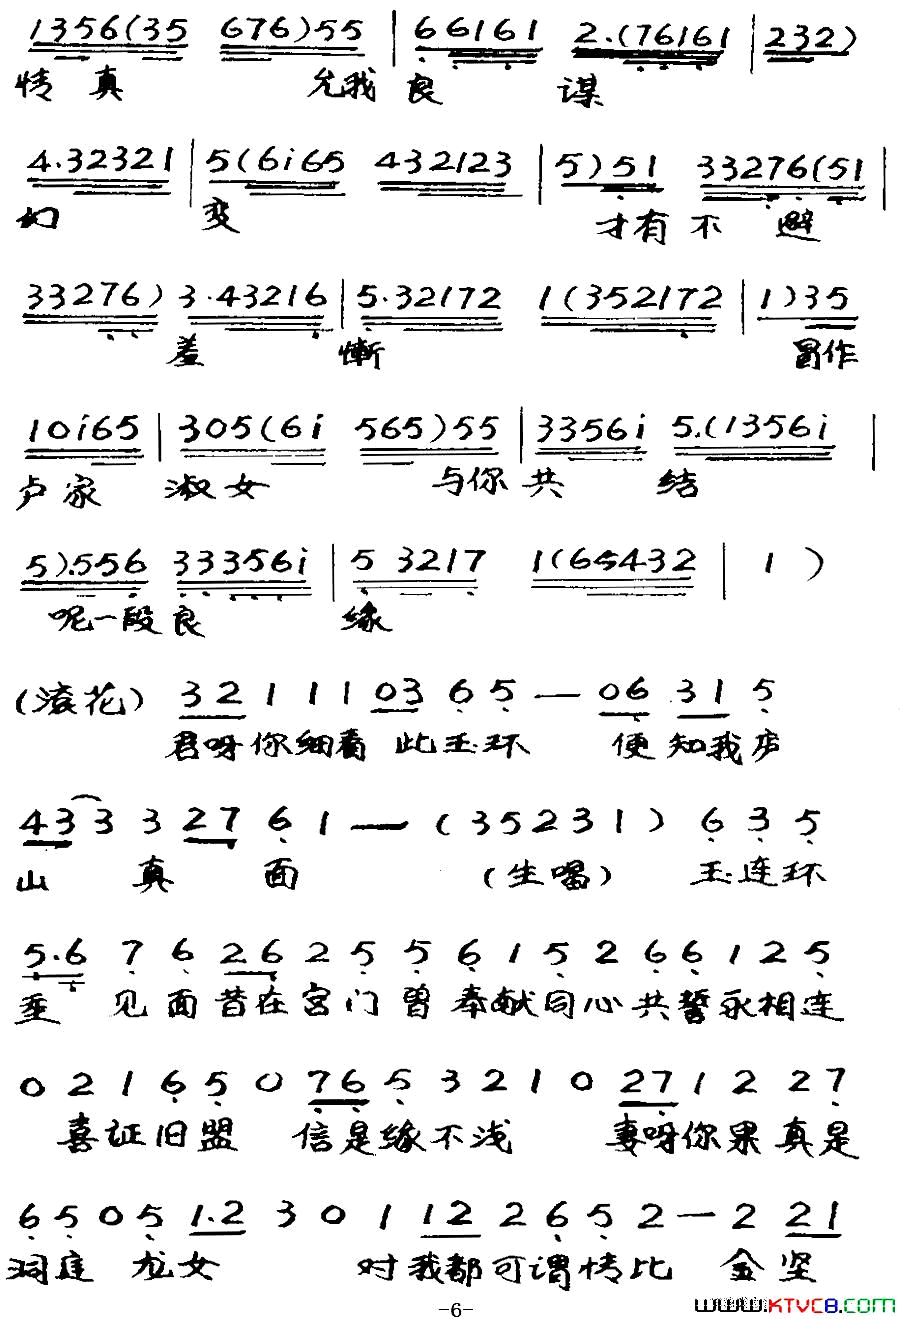 1356(35 676)55 | 66161 2.(76161 | 232)
情真 允我良 谋
4.32321 | 5(6i65 432123 | 5)51 33276(51 |
幻 变 才有不 避
33276) 3.43216 | 5.32172 1(352172 | 1)35
羞 惭 冒作
10i65 | 305(6i 565)55 | 3356i 5.(1356i |
卢家 淑女 与你共 结
5).556 33356i | 5 3217 1(65432 | 1 )
呢一段良 缘
(滚花) 32 1 1 1 03 6 5 — 06 31 5
君呀你细看 此玉环 便知我庐
43 3 3 27 6 1 — (35231) 6 3 5
山 真 面 (生唱) 玉连环
5.6 7 6 26 2 5 5 6 1 5 2 6 6 1 2 5
重 见面昔在宫门曾奉献同心共誓永相连
0 2 1 6 5 0 76 5 3 2 1 0 27 1 2 2 7
喜证旧盟 信是缘不浅 妻呀你果真是
6 5 0 5 1.2 3 0 1 12 2 6 5 2 — 2 21
洞庭 龙女 对我都可谓情比 金坚
-6-
www.KTVC8.COM